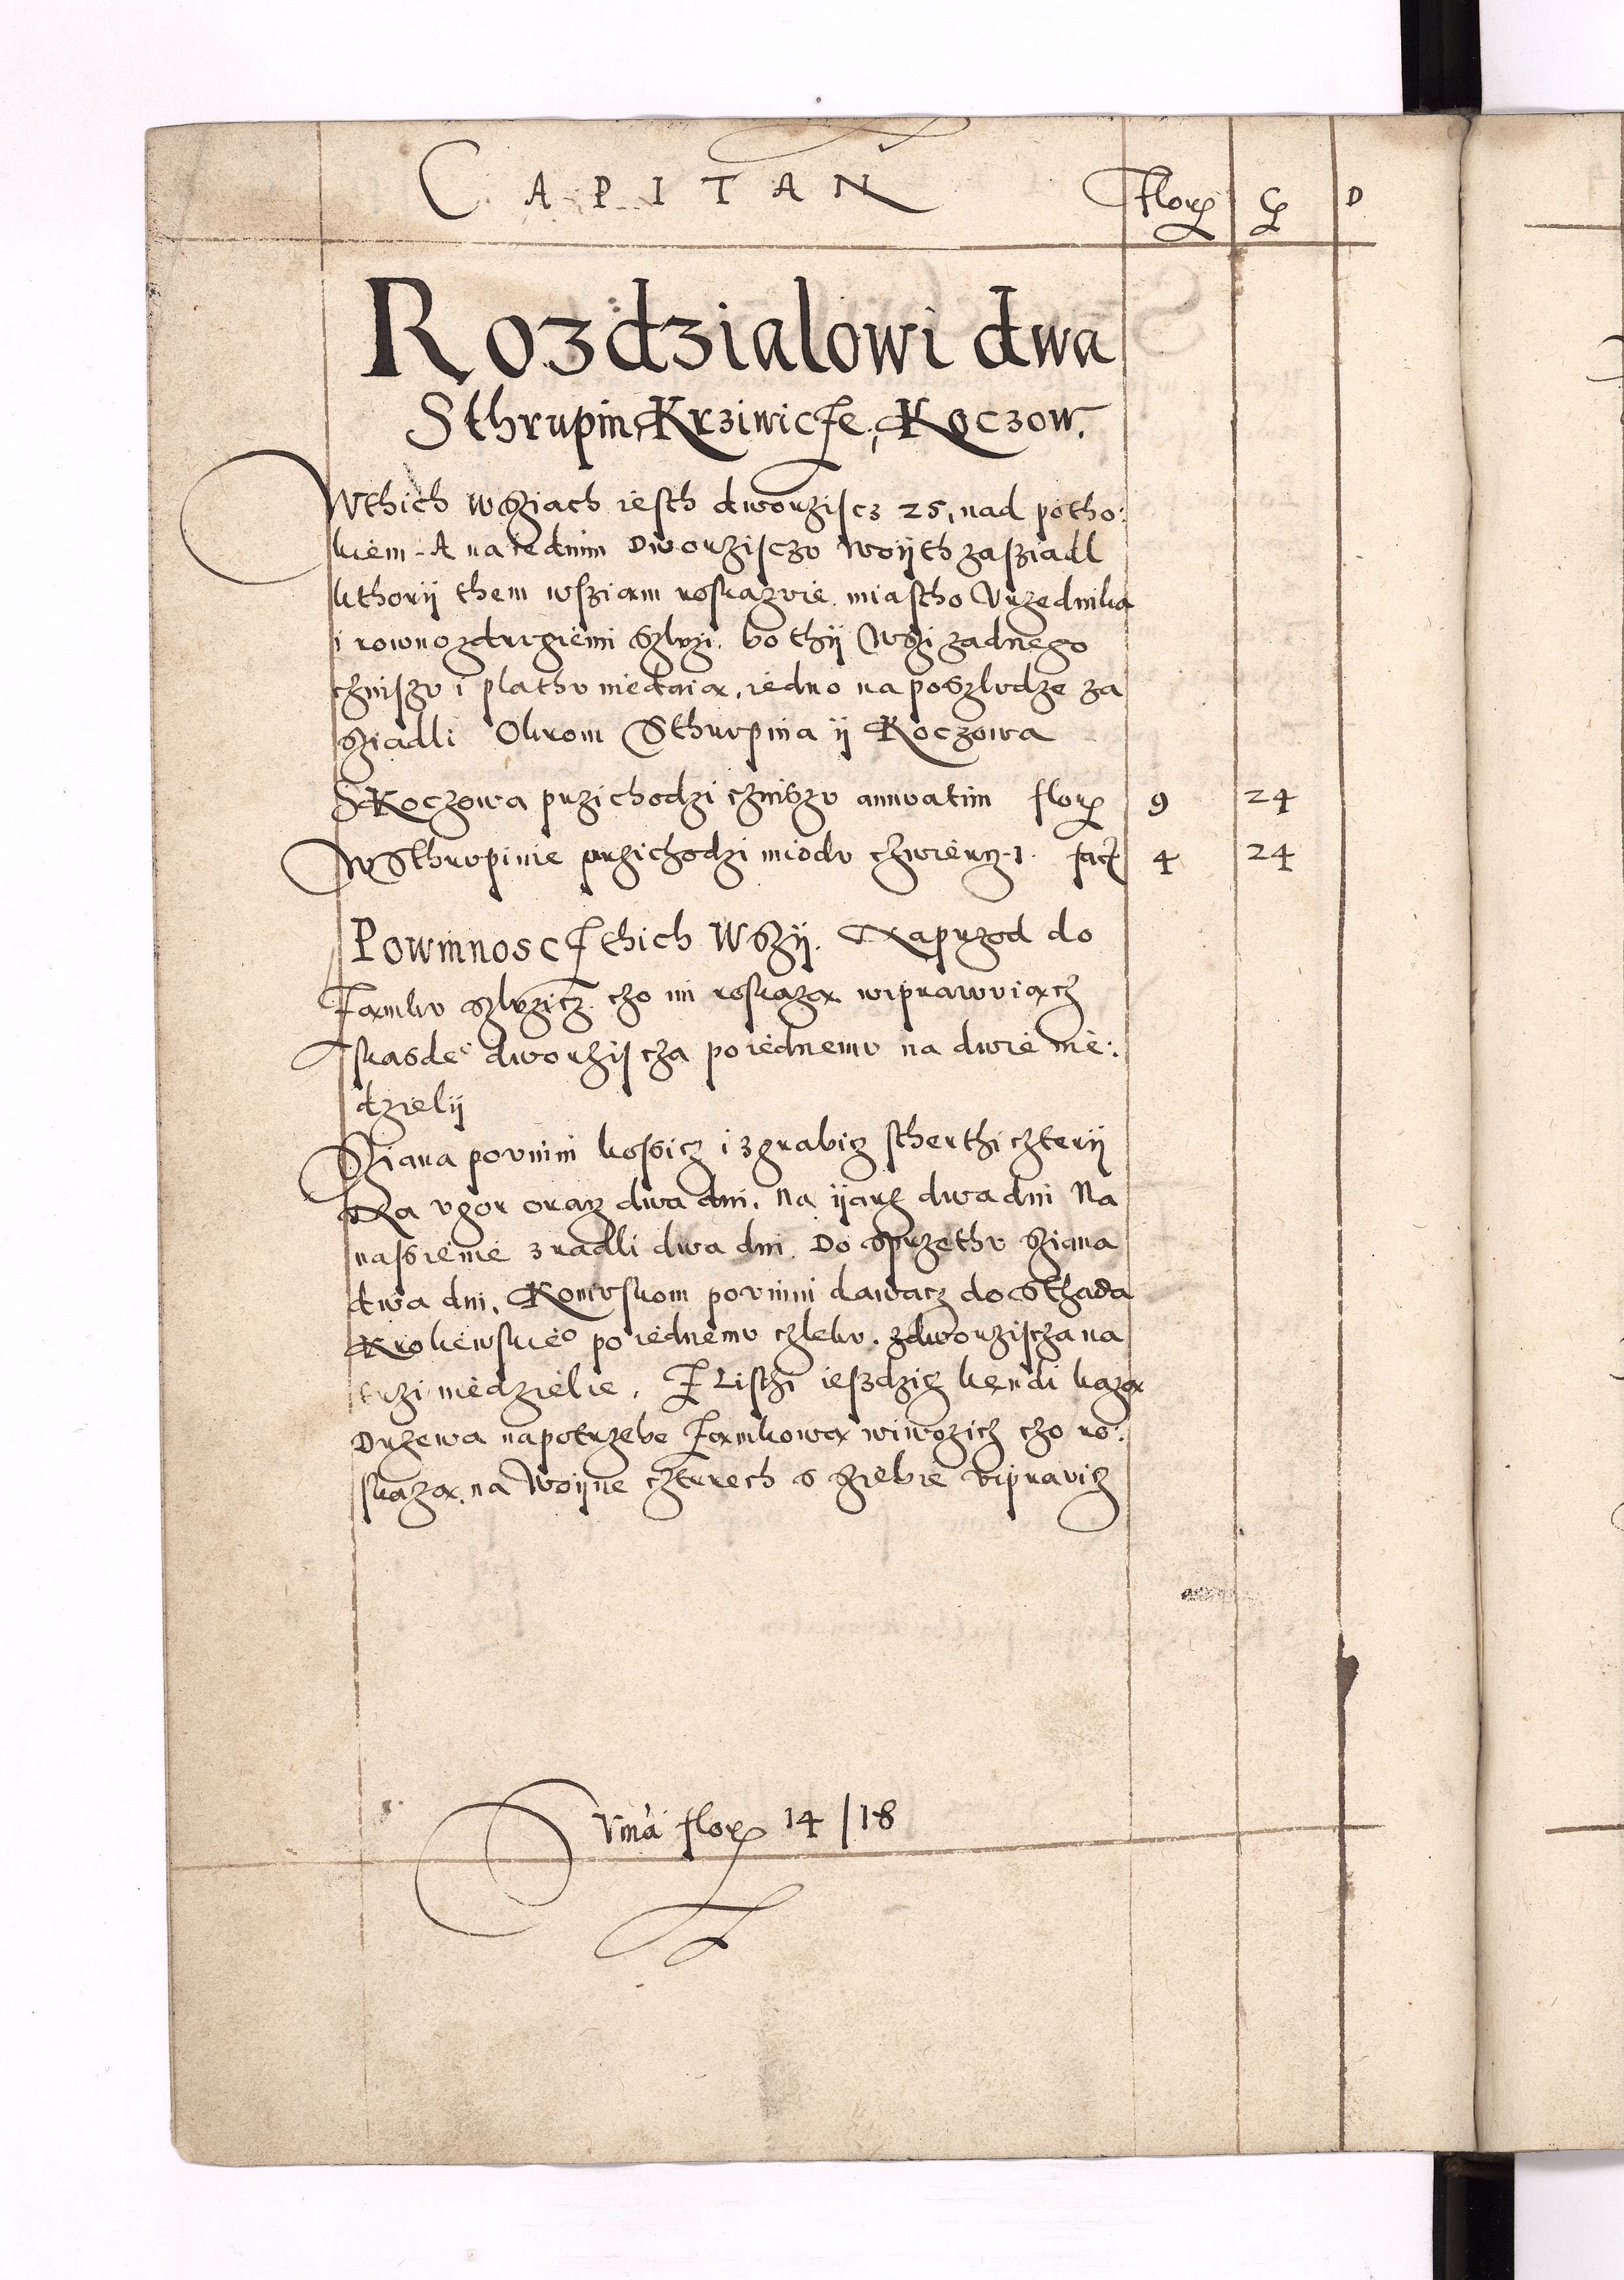 CAPITAN Flor G D
Rozdzialowi dwa
Sthrupin, Krziwicze, Koczow.
Wthich wsziach iesth dworziscz 25, nad potho:
kiem. A na iednim Dworzisczv woyth zasziadl
kthorij them wsziam roskazvie miastho Vrzednika
i rowno zdrvgiemi szlvzi. bo thij wszi zadnego
czinszv i plathv niedaia, iedno na poszlvdze za
sziadli Okrom Sthrvpina ij Koczowa
S Koczowa przichodzi czinszv annvatim flor 9 24
W Sthrvpinie przichodzi miodv czwiercz 1. facit 4 24
Powinnoscz thich Wszij. Naprzod do
Zamkv szlvzicz czo im roskaza wiprawviacz
skasdeo dworziscza po iednemv na dwie nie:
dzielij
Sziana povinni kossicz i zgrabicz stherthi czterij
Na vgor oracz dwa dni, na ijarz dwa dni Na
nassienie zradli dwa dni. Do sprzethv sziana
dwa dni, Konivskom povinni dawacz do sthada
Krolewskieo po iednemv czlekv. z dworziscza na
trzi niedzielie. Z Listhi ieszdzicz kendi kaza
Drzewa napotrzebe Zamkowa wiwozicz czo ro:
skaza, na Woijne czterech s sziebie viprawicz
Svma flor 14 / 18